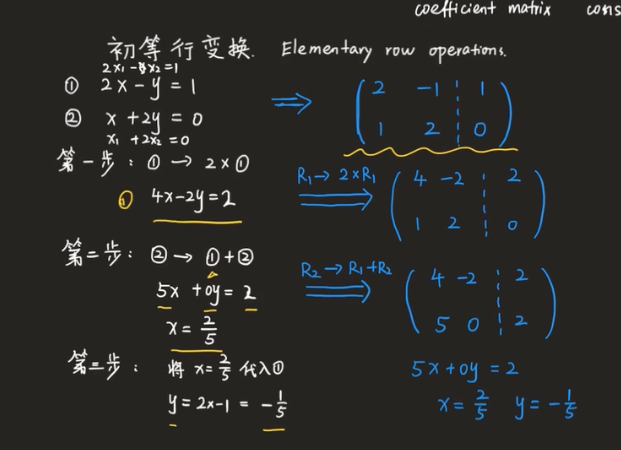 coefficient matrix cons
初等行变换. Elementary row operations.
2x₁-x₂=1
① 2x-y=1
② x+2y=0
x₁+2x₂=0
⇒
( 2 -1 ┆ 1
1 2 ┆ 0 )
第一步: ①→2×①
① 4x-2y=2
R₁→2×R₁
( 4 -2 ┆ 2
1 2 ┆ 0 )
第二步: ②→①+②
5x+0y=2
x=2/5
R₂→R₁+R₂
( 4 -2 ┆ 2
5 0 ┆ 2 )
第三步: 将 x=2/5 代入①
y=2x-1=-1/5
5x+0y=2
x=2/5 y=-1/5